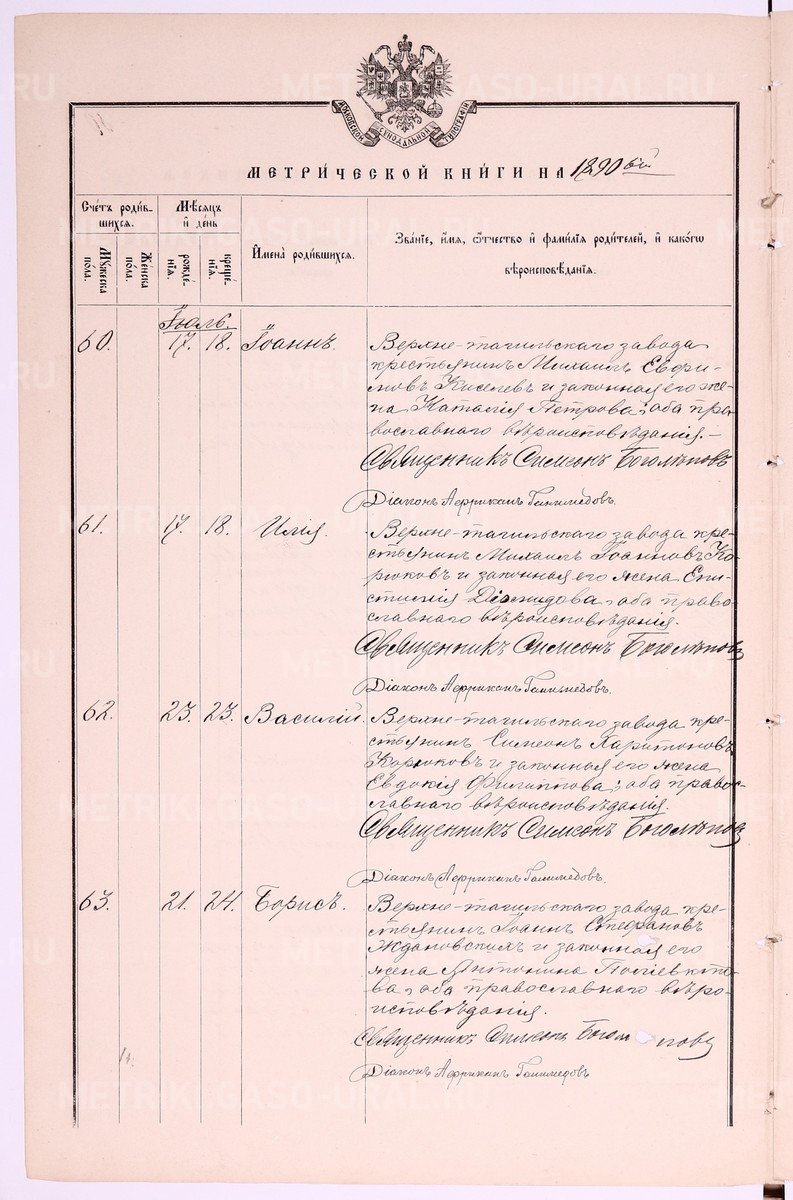 МОСКОВСКОЙ СѴНОДАЛЬНОЙ ТИПОГРАФІИ
МЕТРИ́ЧЕСКОЙ КНИ́ГИ НА 1890 год
Сче́тъ роди́в-
шихся.
Му́жеска по́ла.
Же́нска по́ла.
Мѣ́сяцъ
и҆ де́нь
рожде́-
нїѧ.
креще́-
нїѧ.
И҆мена̀ роди́вшихся.
Зва́нїе, и҆́мя, ѻ҆́тчество и҆ фами́лїѧ роди́телей, и҆ како́гѡ
вѣроисповѣ́данїѧ.
Іюль.
60. 17. 18. Іоаннъ.
Верхне-тагильскаго завода
крестьянинъ Михаилъ Евфи-
мовъ Киселевъ и законная его же-
на Наталія Петрова; оба пра-
вославнаго вѣроисповѣданія.-
Священникъ Симеонъ Боголѣповъ
Діаконъ Африканъ Ганимедовъ.
61. 17. 18. Илія.
Верхне-тагильскаго завода кре-
стьянинъ Михаилъ Іоанновъ Ко-
рюковъ и законная его жена Епи-
стимія Діомидова, оба право-
славнаго вѣроисповѣданія.
Священникъ Симеонъ Боголѣповъ
Діаконъ Африканъ Ганимедовъ.
62. 23. 23. Василій.
Верхне-тагильскаго завода кре-
стьянинъ Симеонъ Харитоновъ
Корюковъ и законная его жена
Евдокія Филиппова; оба правос-
лавнаго вѣроисповѣданія.
Священникъ Симеонъ Боголѣповъ
Діаконъ Африканъ Ганимедовъ.
63. 21. 24. Борисъ.
Верхне-тагильскаго завода кре-
стьянинъ Іоаннъ Стефановъ
Ждановскихъ и законная его
жена Антонина Поліевкто-
ва, оба православнаго вѣро-
исповѣданія.
Священникъ Симеонъ Богол повъ
Діаконъ Африканъ Ганимедовъ
METRIK.GASO-URAL.RU